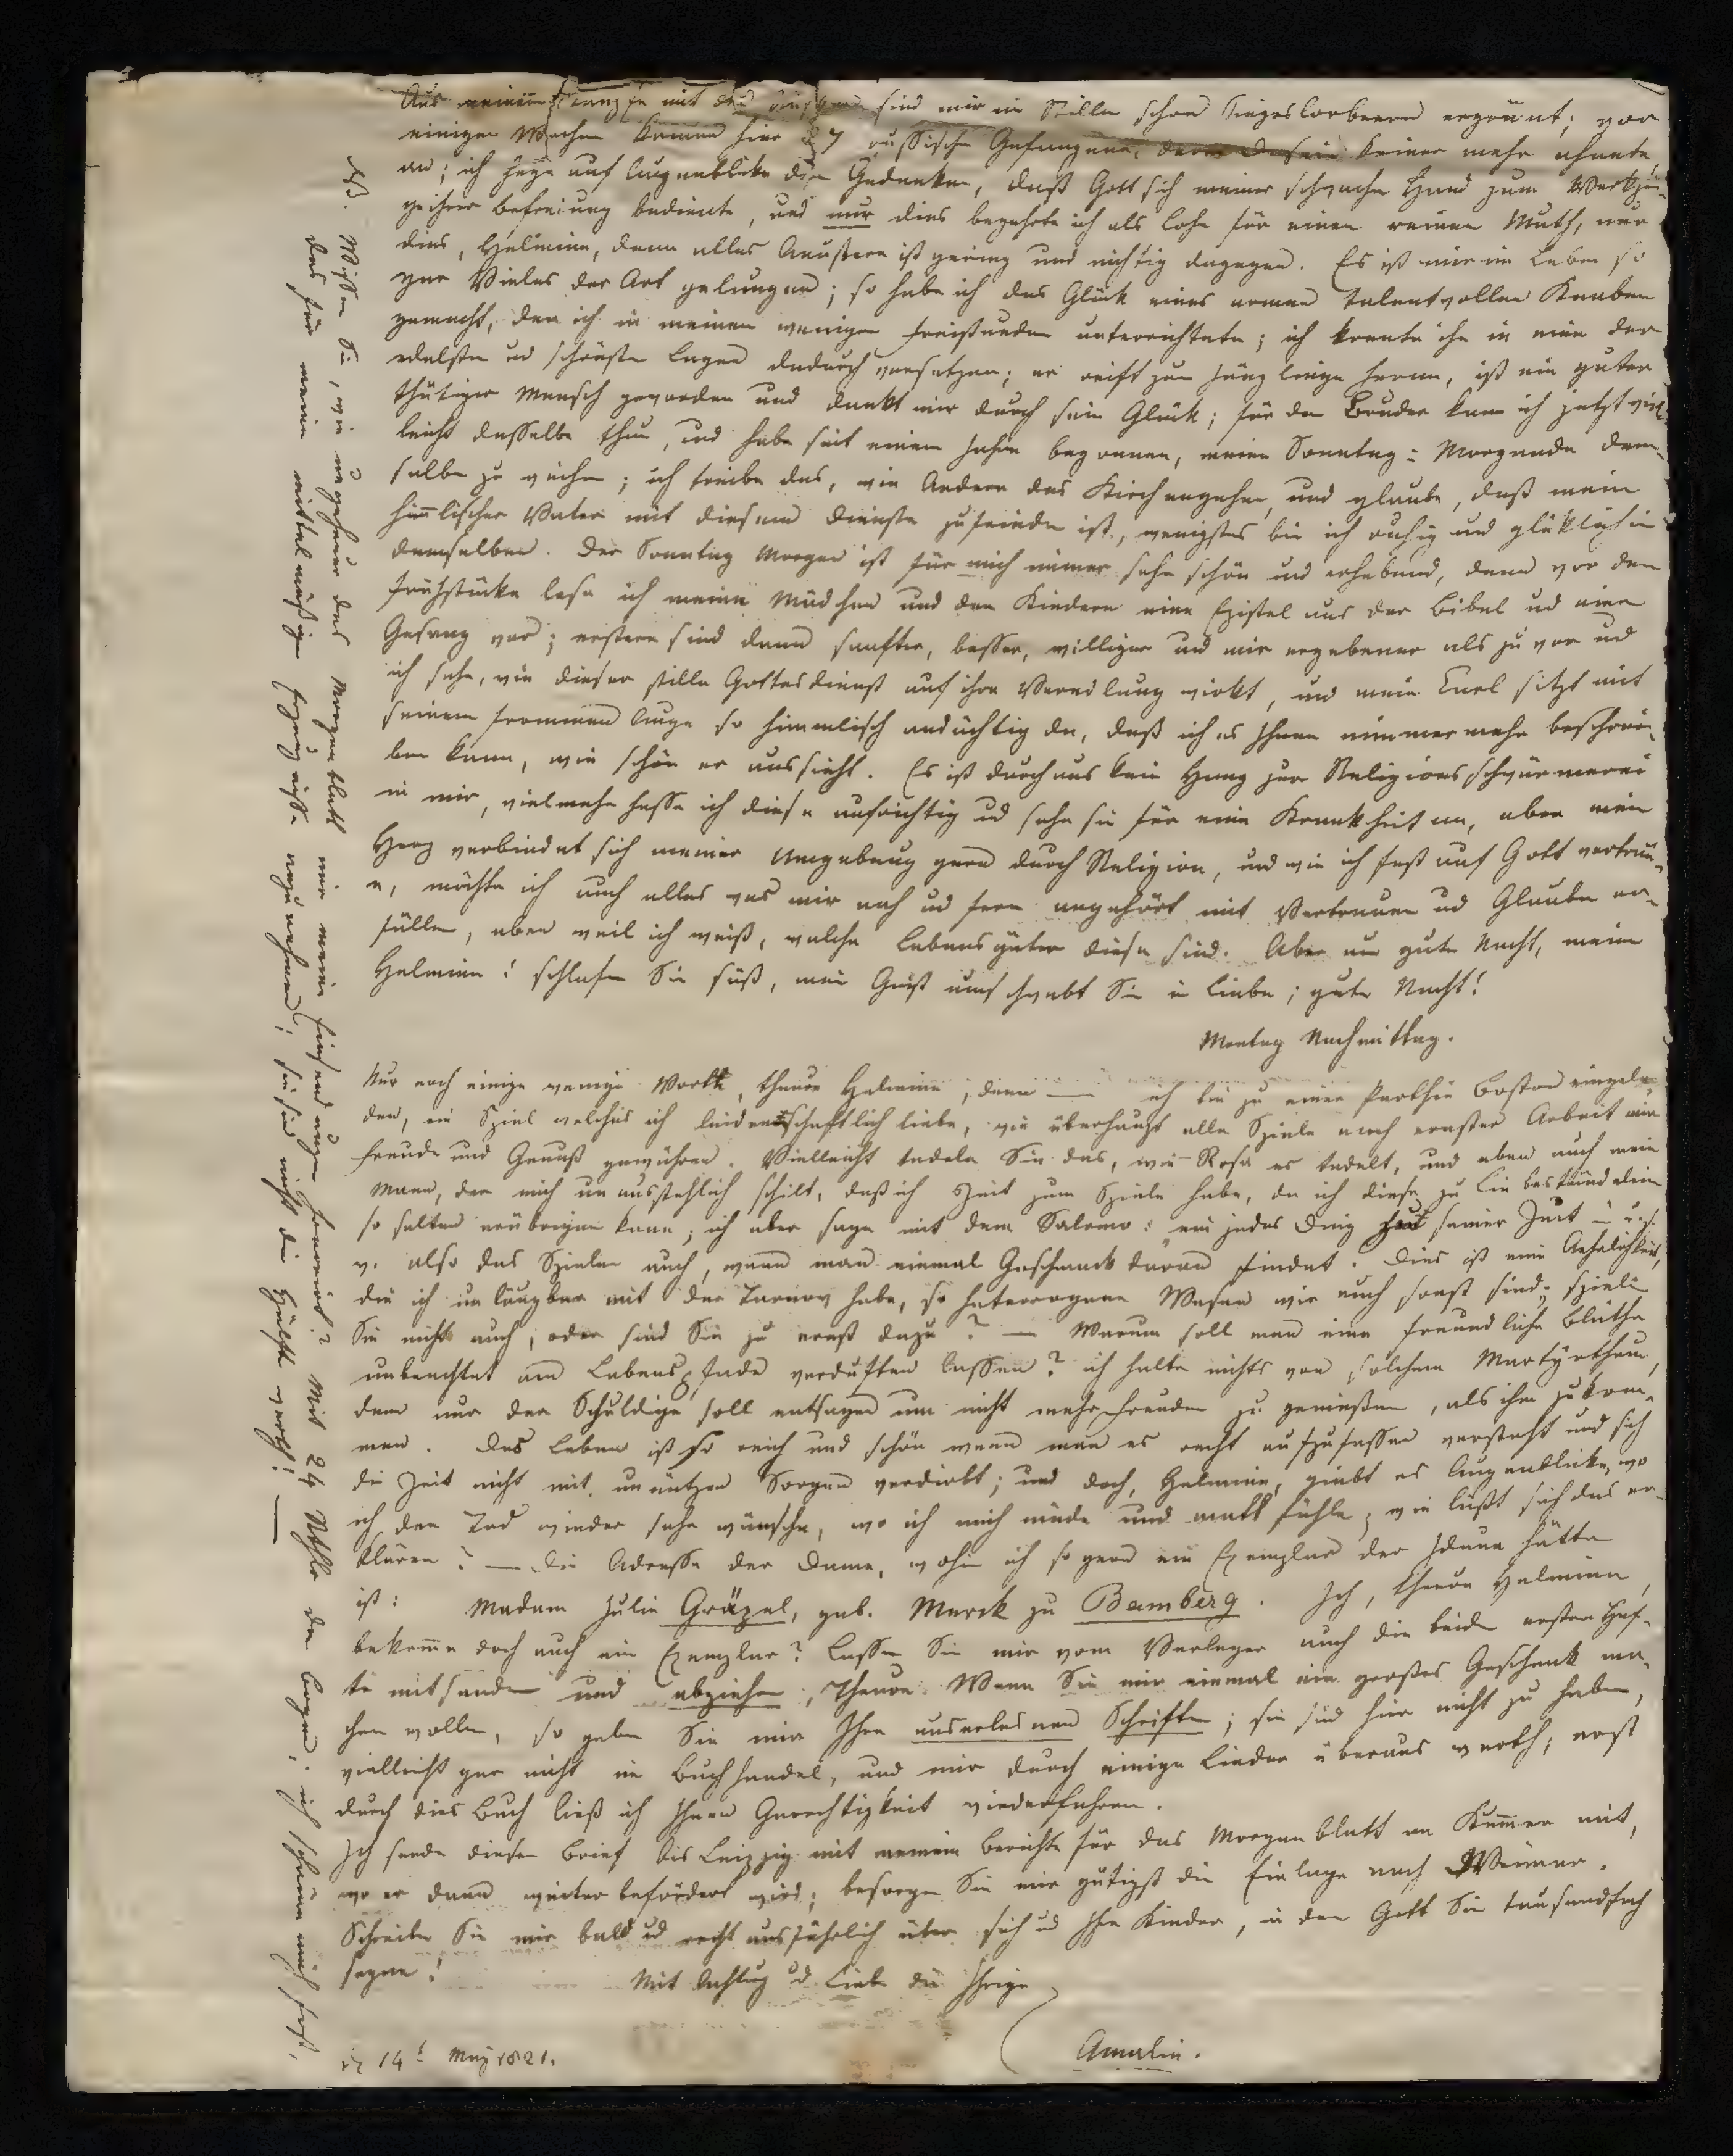 Aus meinem Kampfe mit den sind mir im Stillen schon Siegeslorbeeren ergrünt; vor
einigen Wochen kamen hier 27 russische Gefangene, deren Dasein keiner mehr ahnete,
an; ich hege auf Augenblicke den Gedanken, daß Gott sich meiner schwachen Hand zum Werkzeu-
ge ihrer Befreiung bediente, und nur dies begehrte ich als Lohn für einen reinen Muth, nur
dies, Helmine, denn alles Aeußere ist gering und nichtig dagegen. Es ist mir im Leben so
gar Vieles der Art gelungen; so habe ich das Glück eines armen talentvollen Knaben
gemacht, den ich in meinen wenigen Freistunden unterrichtete; ich konnte ihn in eine der
edelsten und schönsten Lagen dadurch versetzen; er reift zum Jünglinge heran, ist ein guter
thätiger Mensch geworden und dankt mir durch sein Glück; für den Bruder kann ich jetzt viel-
leicht dasselbe thun, und habe seit einem Jahre begonnen, meine Sonntag-Morgende dem-
selben zu weihen; ich treibe das, wie Andere das Kirchengehen, und glaube, daß mein
himlischer Vater mit diesem Dienste zufrieden ist, wenigstens bin ich ruhig und glüklich in
demselben. Der Sonntag Morgen ist für mich immer sehr schön und erhebend, denn vor dem
Frühstücke lese ich meinen Mädchen und den Kindern eine Epistel aus der Bibel ud einen
Gesang vor; erstere sind dann sanfter, besser, williger und mir ergebener als zuvor ud
ich sehe, wie dieser stille Gottesdienst auf ihre Veredlung wirkt, und mein Carl sitzt mit
seinem frommen Auge so himmlisch andächtig da, daß ich es Ihnen nimmermehr beschrei-
ben kann, wie schön er aussieht. Es ist durchaus kein Hang zur Religionsschwärmerei
in mir, vielmehr hasse ich diese aufrichtig ud sehe sie für eine Krankheit an, aber mein
Herz verbindet sich meiner Umgebung gern durch Religion, und wie ich fest auf Gott vertrau-
e, möchte ich auch alles was mir nah ud fern angehört mit Vertrauen ud Glauben er-
füllen, eben weil ich weiß, welche Lebensgüter diese sind. Aber nun gute Nacht, meine
Helmine! schlafen Sie süß, mein Geist umschwebt Sie in Liebe; gute Nacht!
Montag Nachmittag.
Nur noch einige wenige Worte, theure Helmine, denn — ich bin zu einer Parthie Boston eingela-
den, ein Spiel welches ich leidenschaftlich liebe, wie überhaupt alle Spiele nach ernster Arbeit mir
Freude und Genuß gewähren. Vielleicht tadeln Sie das, wie Rosa es tadelt, und eben auch mein
Mann, der mich unausstehlich schilt, daß ich Zeit zum Spiele habe, da ich diese zu Liebesbeständelein
so selten erübrigen kann; ich aber sage mit dem Salomo: ein jedes Ding hat seine Zeit u. s.
w. also das Spielen auch, wenn man einmal Geschmack daran findet. Dies ist eine Aehnlichkeit,
die ich unläugbar mit der Tarnow habe, so heterogene Wesen wir auch sonst sind; spielen
Sie nicht auch, oder sind Sie zu ernst dazu? — Warum soll man eine freundliche Blüthe
unbeachtet am Lebenspfade verduften lassen? ich halte nichts von solchem Martyrthum,
denn nur der Schuldige soll entsagen um nicht mehr Freuden zu genießen, als ihm zukom-
men. Das Leben ist so reich und schön wenn man es recht aufzufassen versteht und sich
die Zeit nicht mit unnützen Sorgen verdirbt; und doch, Helmine, giebt es Augenblicke, wo
ich den Tod wieder sehr wünsche, wo ich mich müde und matt fühle; wie läßt sich das er-
klären? — Die Adresse der Dame, wohin ich so gern ein Exemplar der Iduna hätte
ist: Madam Julie Gräzel, geb. Marck zu Bamberg. Ich, theure Helmine,
bekomme doch auch ein Exemplar? Lassen Sie mir vom Verleger auch die beiden ersten Hef-
te mitsenden und abziehen, Theure. Wenn Sie mir einmal ein großes Geschenk ma-
chen wollen, so geben Sie mir Ihre auserlesnen Schriften; sie sind hier nicht zu haben,
vielleicht gar nicht im Buchhandel, und mir durch einige Lieder überaus werth, erst
durch dies Buch ließ ich Ihnen Gerechtigkeit wiederfahren.
Ich sende diesen Brief bis Leipzig mit meinem Berichte für das Morgenblatt an Kummer mit,
wo er dann weiter befördert wird; besorgen Sie mir gütigst die Einlage nach Weimar.
Schreiben Sie mir bald ud recht ausführlich über sich ud Ihre Kinder, in den Gott Sie tausendfach
segne!
Mit Achtug ud Liebe die Ihrige
Amalia.
14t May 1821.
NS. Wissen Sie, wie ungeheuer das Morgenblatt mir meine Einsendungen honorirt? Mit 24 Rthlr den Bogen; ich schäme mich fast,
das für meine mittelmäßigen Erzeugnisse anzunehmen; sie sind nicht die Hälfte werth! —